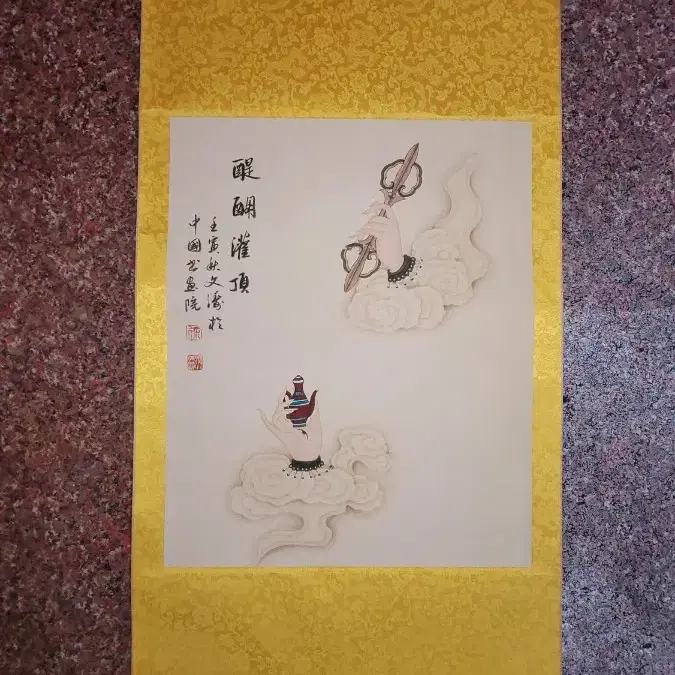 醍醐灌顶
壬寅秋文涛於
中國書画院